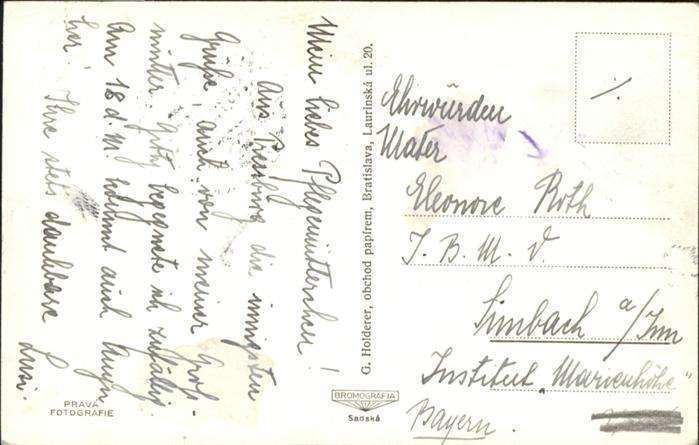 Mein liebes Pflegemütterchen!
Aus Pressburg die innigsten
Grüße, auch von meiner Groß-
mutter. Grotz begegnete ich zufällig.
Am 18 d. M. kommt auch
her!
Ihre stets dankbare
Lusi.
PRAVÁ
FOTOGRAFIE
G. Holderer, obchod papírem, Bratislava, Laurinská ul. 20.
BROMOGRAFIA
Sadská
Ehrwürden
Mater
Eleonore Roth
I. B. M. V.
Simbach a/Inn
Institut „Marienhöhe"
Bayern.